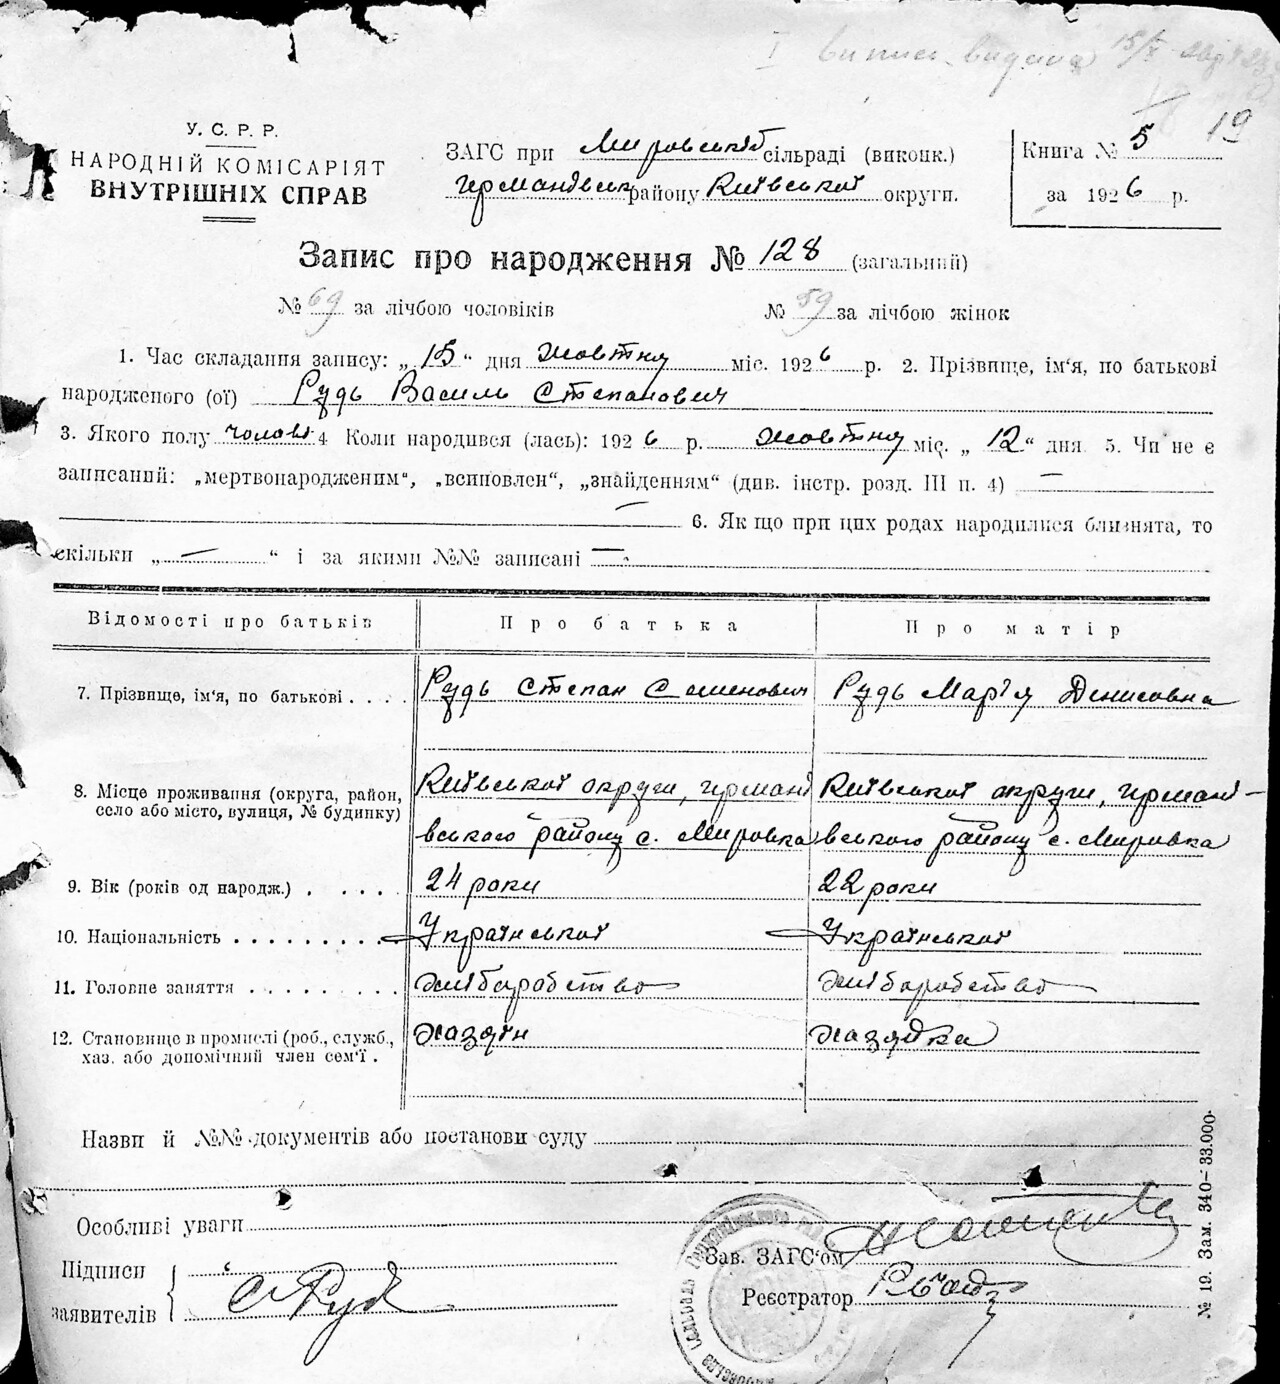 І випис видана 15/X
19
У. С. Р. Р.
НАРОДНІЙ КОМІСАРІЯТ
ВНУТРІШНІХ СПРАВ
ЗАГС при Мировській сільраді (виконк.)
Германівськ району Київської округи.
Книга № 5
за 1926 р.
Запис про народження № 128 (загальний)
№ 69 за лічбою чоловіків № 59 за лічбою жінок
1. Час складання запису: „15“ дня жовтня міс. 1926 р. 2. Прізвище, ім‘я, по батькові
народженого (ої) Рудь Василь Степанович
3. Якого полу чолові 4 Коли народився (лась): 1926 р. жовтня міс. „12“ дня 5. Чи не є
записаний: „мертвонародженим“, „всиновлен“, „знайденням“ (див. інстр. розд. III п. 4) —
— 6. Як що при цих родах народилися близнята, то
скільки „—“ і за якими №№ записані —
Відомості про батьків Про батька Про матір
7. Прізвище, ім‘я, по батькові . . . . Рудь Степан Семенович Рудь Мар'я Денисовна
8. Місце проживання (округа, район, село або місто, вулиця, № будинку) Київської округи, германі Київської округи, германі-
вського району с. Мировка вського району с. Мировка
9. Вік (років од народж.) . . . . . 24 роки 22 роки
10. Національність . . . . . . . . . Української Української
11. Головне заняття . . . . . . . . . хліборобство хліборобство
12. Становище в промислі (роб., служб., хазяїн хазяйка
хаз. або допомічний член сем‘ї .
Назви й №№ документів або постанови суду
Особливі уваги
Підписи
заявителів
С Рудь
Зав. ЗАГС‘ом
Реєстратор
№ 19. Зам. 340—33.000.